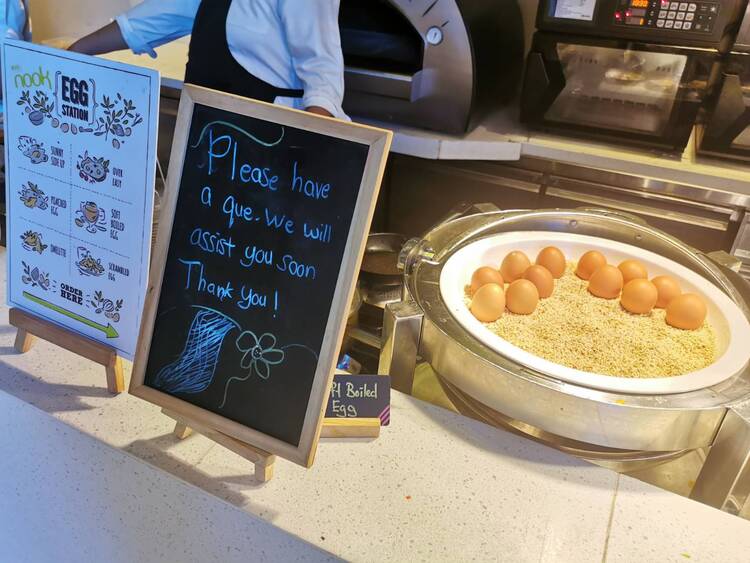 nook
EGG
STATION
SUNNY
SIDE UP
OVER
EASY
POACHED
EGG
SOFT
BOILED
EGG
OMELETTE
SCRAMBLED
EGG
ORDER
HERE
Please have
a que. We will
assist you soon
Thank you!
ft Boiled
Egg